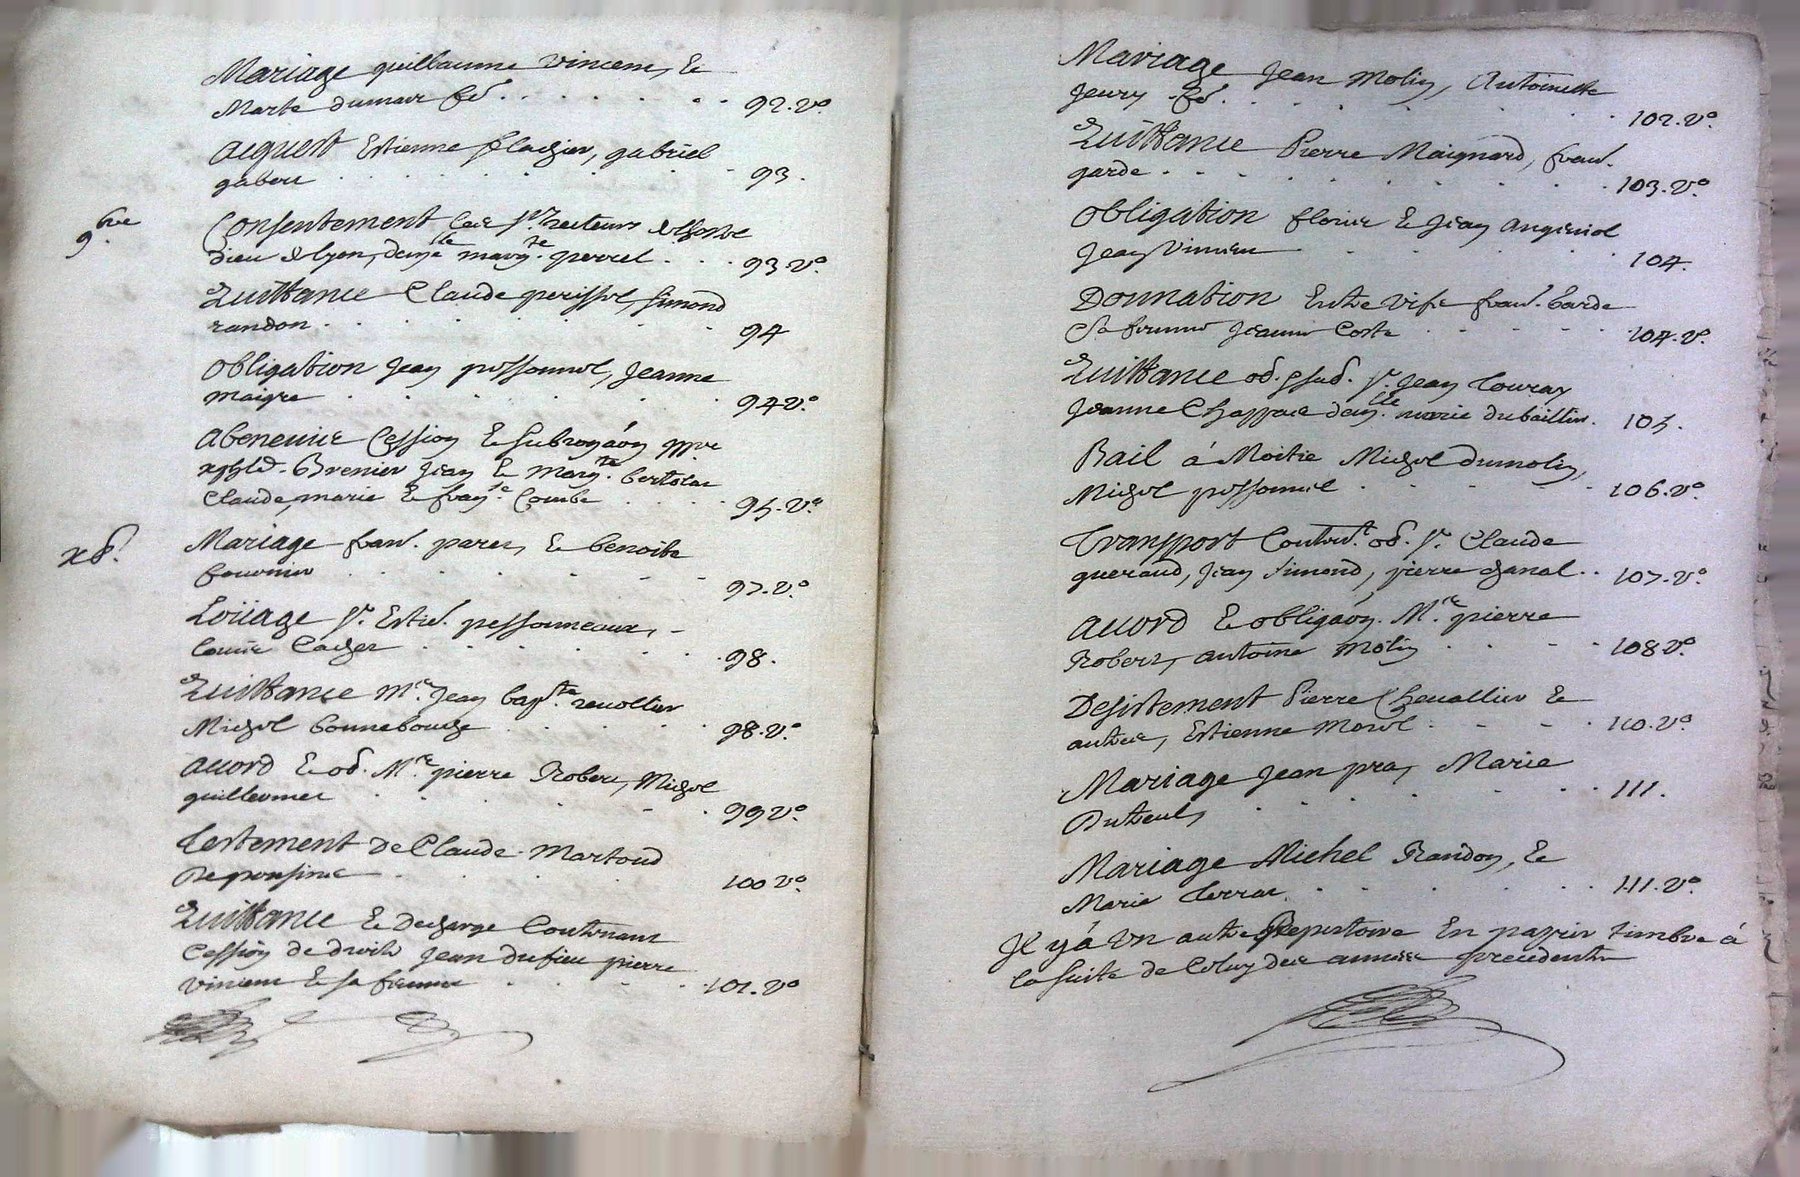 Mariage guillaume vincent, &
Marte dumas
92. vo.
acquest Estienne plagier, gabriel
gabert
93.
9bre
Consentement Les srs. recteurs de lhostel
dieu de lyon, demlle margte. perret
93. vo.
Quittance Claude perissol, simond
randon
94
obligation jean possonnel, jeanne
maigre
94 vo.
abenevis Cession & subrogaon
Brenier jean & margte. bertolas
Claude, marie & franse. Combe
95. vo.
x8.
Mariage fran. paret, & benoite
fournier
97. vo.
Loüage sr. Estie. pessonneaux,
98.
Quittance Me. jean bapte. reuollier
Michel bonnebouche
98. vo.
accord & od. Me. pierre Robert, Michel
guillermet
99 vo.
testement de Claude Martoud
100 vo.
Quittance & decharge Contenant
Cession de droits jean dufieu pierre
vincent & sa femme
101. vo
Mariage jean Molin, Antoinette
102. vo.
Quittance Pierre Maignard, fran.
garde
103. vo
obligation florie & jean angeniol
jean Vincent
104.
Donnation Entre vifs fran. barde
& sa femme jeanne Coste
104. vo.
Quittance od. sr. jean Couray
jeanne Chappas demlle. marie duboillin.
105.
Bail á Moitie Michel dumolin,
Michel possonnel
106. vo.
Transport Contenat. od. sr. Claude
gueraud, jean simond, pierre chanal
107. vo.
accord & obligaon. Me. pierre
Robert, antoine Molin
108 vo.
Desistement Pierre Cheuallier &
autres, Estienne Morel
110. vo.
Mariage jean pra, Marie
Duteul,
111.
Mariage Michel Randon, &
Marie terras.
111. vo.
Il y á Un autre Repertoire En papier timbre á
la suite de Celuy des années precedentes